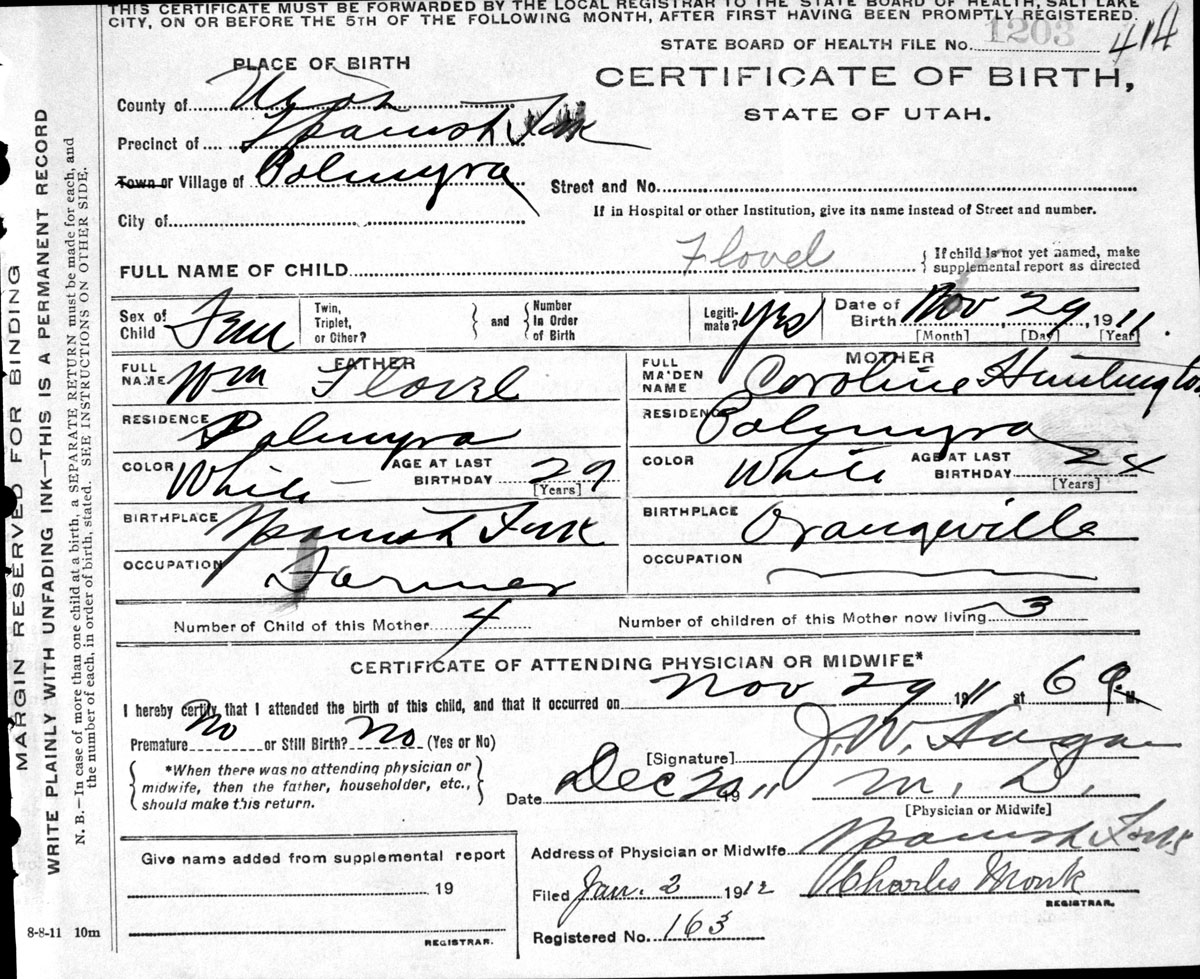 THIS CERTIFICATE MUST BE FORWARDED BY THE LOCAL REGISTRAR TO THE STATE BOARD OF HEALTH, SALT LAKE
CITY, ON OR BEFORE THE 5TH OF THE FOLLOWING MONTH, AFTER FIRST HAVING BEEN PROMPTLY REGISTERED.
STATE BOARD OF HEALTH FILE No. 1203 414
PLACE OF BIRTH
CERTIFICATE OF BIRTH,
STATE OF UTAH.
County of Utah
Precinct of Spanish Fork
Town or Village of Palmyra
Street and No.
City of
If in Hospital or other Institution, give its name instead of Street and number.
FULL NAME OF CHILD Flovel
If child is not yet named, make
supplemental report as directed
Sex of Child Fem
Twin, Triplet, or Other?
and
Number In Order of Birth
Legitimate? Yes
Date of Birth Nov 29, 1911.
[Month] [Day] [Year]
FATHER
FULL NAME Wm Flovel
MOTHER
FULL MAIDEN NAME Caroline Huntington
RESIDENCE Palmyra
RESIDENCE Palmyra
COLOR White AGE AT LAST BIRTHDAY 29 [Years]
COLOR White AGE AT LAST BIRTHDAY 24 [Years]
BIRTHPLACE Spanish Fork
BIRTHPLACE Orangeville
OCCUPATION Farmer
OCCUPATION
Number of Child of this Mother 4
Number of children of this Mother now living 3
CERTIFICATE OF ATTENDING PHYSICIAN OR MIDWIFE*
I hereby certify that I attended the birth of this child, and that it occurred on Nov 29 1911 at 6 M.
Premature No or Still Birth? No (Yes or No)
J. W.
[Signature]
*When there was no attending physician or
midwife, then the father, householder, etc.,
should make this return.
Date Dec 1911
M. D.
[Physician or Midwife]
Give name added from supplemental report
19
REGISTRAR.
Address of Physician or Midwife Spanish Fork
Filed Jan. 2 1912 Charles Monk
REGISTRAR.
Registered No. 163
8-8-11 10m
MARGIN RESERVED FOR BINDING
WRITE PLAINLY WITH UNFADING INK—THIS IS A PERMANENT RECORD
N. B.—In case of more than one child at a birth, a SEPARATE RETURN must be made for each, and
the number of each, in order of birth, stated. SEE INSTRUCTIONS ON OTHER SIDE.